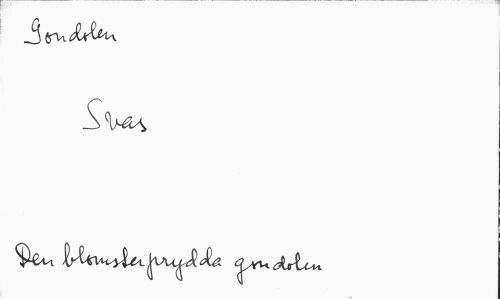 Gondolen
Svas
Den blomsterprydda gondolen